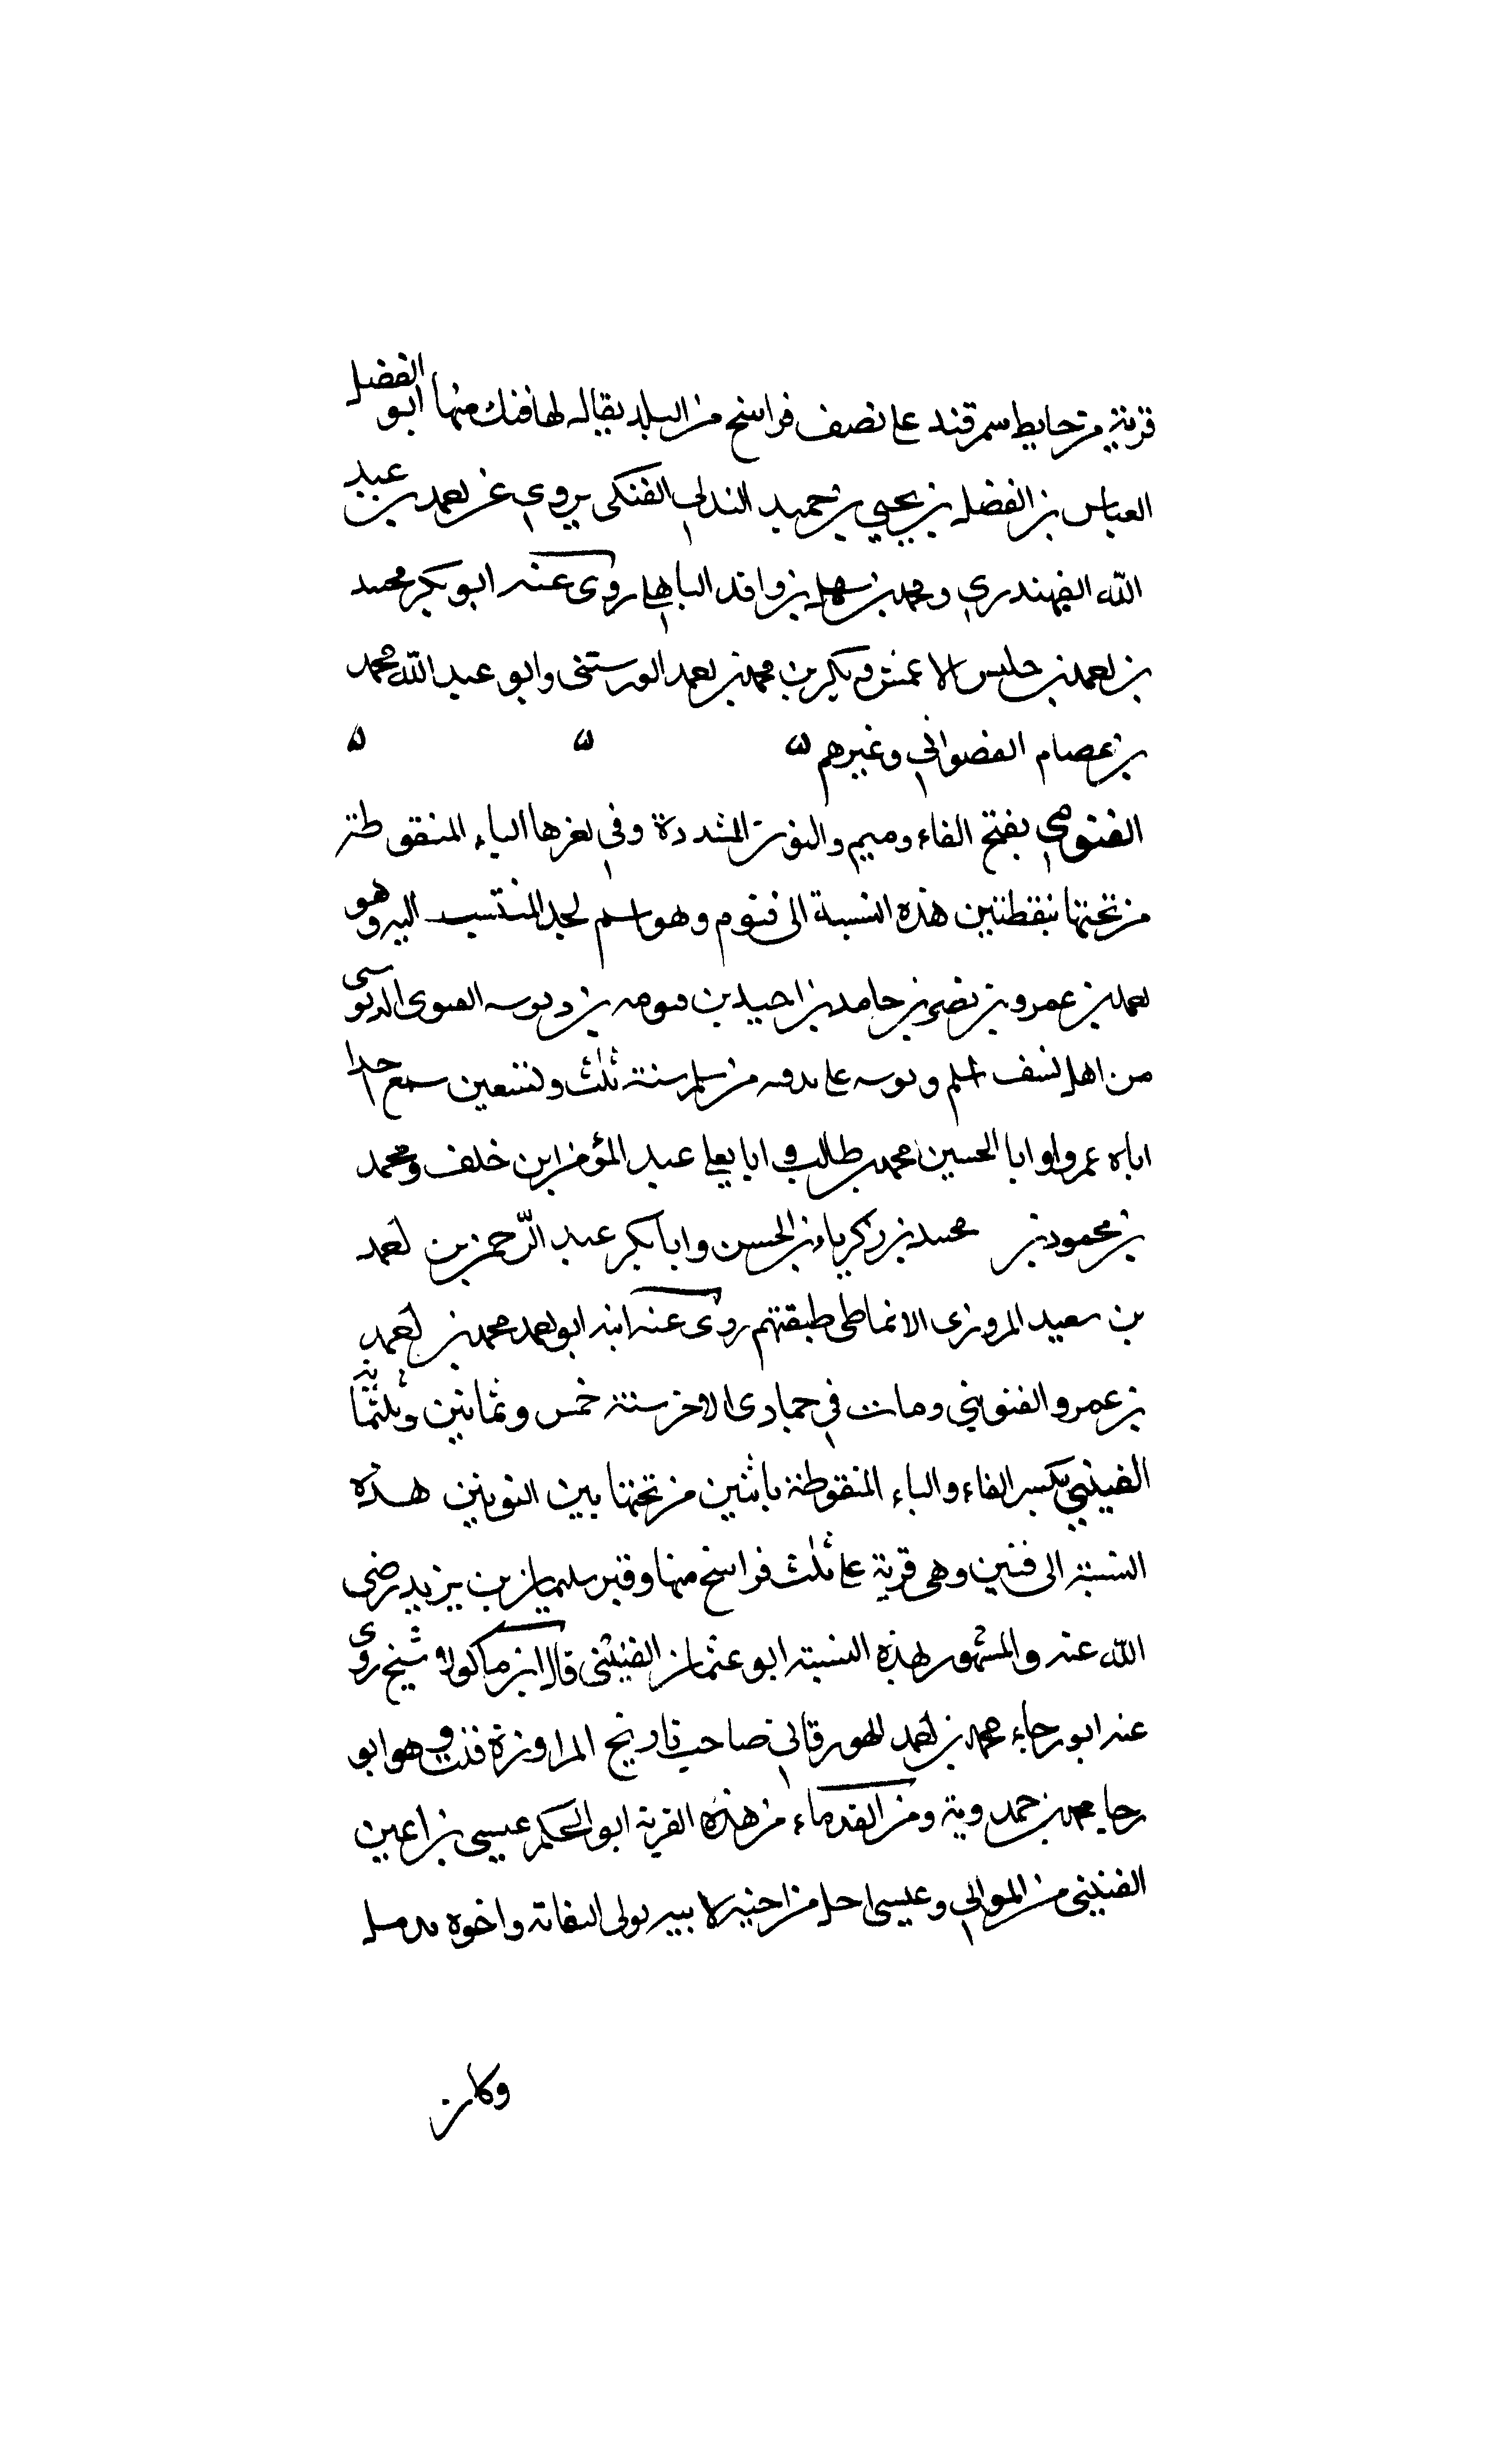 قرية من حايط سمرقند على نصف فراسخ من البلد يقال لها فنك منها ابو الفضل
العباس بن الفضل بن يحيى بن حميد الندلي الفنكى يروي عن احمد بن عبيد
الله الفهندري ومحمد بن سهل بن واقد الباهلي روى عنه ابو بكر محمد
بن احمد بن حليس الاعمش وبكر بن محمد بن احمد الورسنى وابو عبد الله محمد
بن عصام الفضواني وغيرهم
الفنومى بفتح الفاء وميم والنون المشددة وفي اخرها الياء المنقوطة
من تحتها بنقطتين هذه النسبة الى فنوم وهو اسم لجد المنتسب اليه وهو
احمد بن عمرو بن نصر بن حامد بن احيد بن بن دبوسه
من اهل نسف اسلم دبوسه على من سلم سنة ثلث وتسعين سمع
اباه عمروا وابا الحسين محمد بن طالب وابا يعلى عبد المؤمن ابن خلف ومحمد
بن محمود بن محمد بن زكرياء بن الحسن وابا بكر عبد الرحمن بن احمد
بن سعيد المروزى الانماطى طبقتهم روى عنه ابنه ابو احمد محمد بن احمد
بن عمرو الفنويني ومات في جمادى الاخر سنة خمس وثمانين وثلثمائة
الفنيني بكسر الفاء والياء المنقوطة باثنين من تحتها بين النونين هذه
النسبة الى فنين وهى قرية على ثلث فراسخ منها وقبر سليمان بن يزيد رضى
الله عنه والمشهور بهذه النسبة ابو عثمان الفنينى قال ابن ماكولا شيخ روى
عنه ابو رجاء محمد بن احمد الهورقاني صاحب تاريخ المراوزة فنت وهو ابو
رجا محمد بن حمدوية ومن القدماء من هذه القرية ابو الحكم عيسى بن اعين
الفنينى من الموالي وعيسى اخ من اخيه لابيه يولى واخوه بديل
وكان